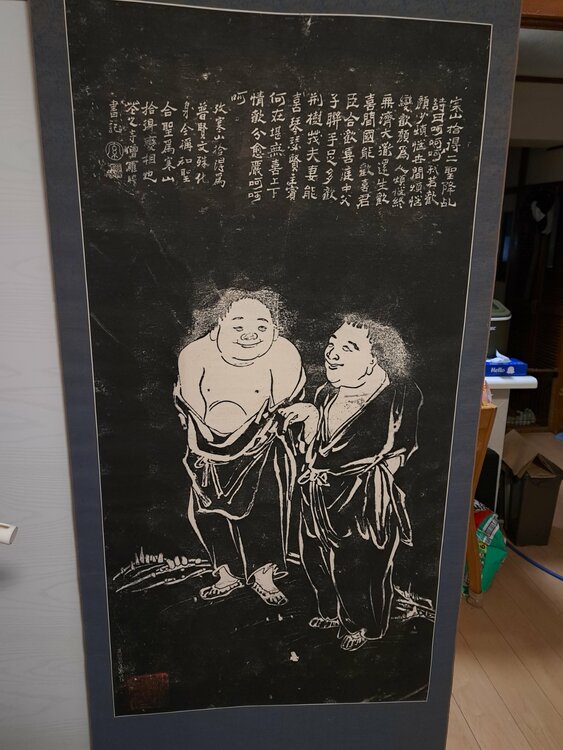 寒山拾得二聖降乩
詩曰呵呵呵我若歡
顏少煩惱世間煩惱
變歡顏為人煩惱終
無濟大道還生歡
喜間國能歡喜君
臣合歡喜庭中父
子聯手足多歡
荊樹茂夫妻能
喜琴瑟賢主賓
何在堪無喜上下
情歡分愈嚴呵呵
呵
攷寒山拾得為
普賢文殊化
身今稱和聖
合聖為寒山
拾得變相也
花之寺僧羅聘
書記
Hello